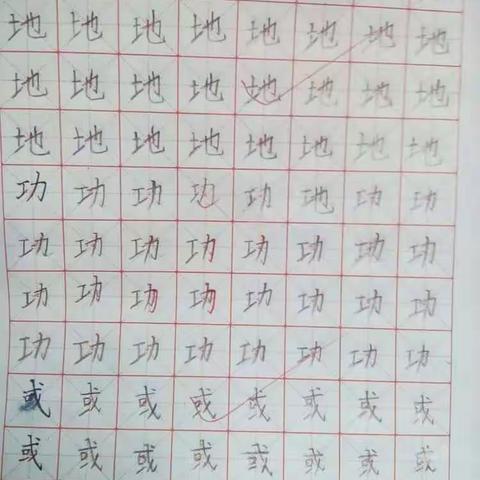 地 地 地 地 地 地 地 地
地 地 地 地 地 地 地 地
地 地 地 地 地 地 地 地
功 功 功 功 功 地 功 功
功 功 功 功 功 功 功 功
功 功 功 功 功 功 功 功
功 功 功 功 功 功 功 功
或 或 或 或 或 或 或 或
或 或 或 或 或 或 或 或